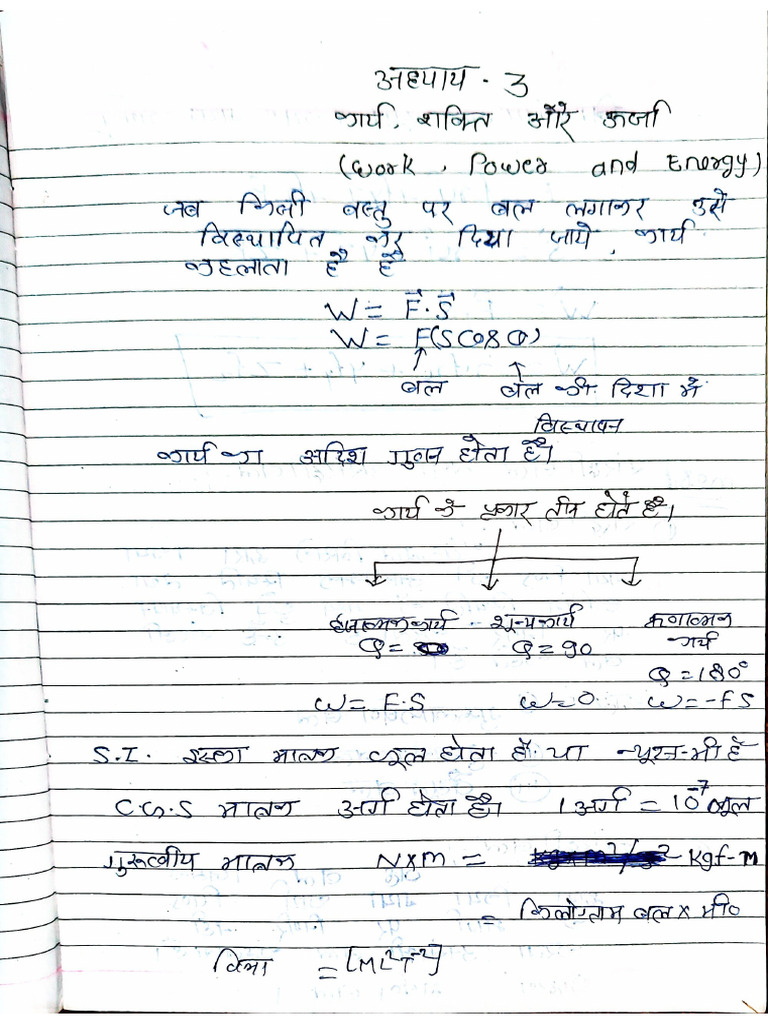 अध्याय - 3
कार्य, शक्ति और ऊर्जा
(Work, Power and Energy)
जब किसी वस्तु पर बल लगाकर उसे
विस्थापित कर दिया जाये, कार्य
कहलाता है है
W = F⃗.S⃗
W = F(S cos θ)
बल बल की दिशा में
विस्थापन
कार्य का अदिश गुणन होता है।
कार्य के प्रकार तीन होते है।
धनात्मक कार्य शून्य कार्य ऋणात्मक
कार्य
θ = θ = 90
θ = 180°
W = F.S W = 0. W = -FS
S.I. इसका मात्रक जूल होता है या न्यूटन-मी है
C.G.S मात्रक अर्ग होता है। 1 अर्ग = 10⁻⁷ जूल
गुरुत्वीय मात्रक N×M = Kgf-m
= किलोग्राम बल × मी०
विमा = [ML²T⁻²]